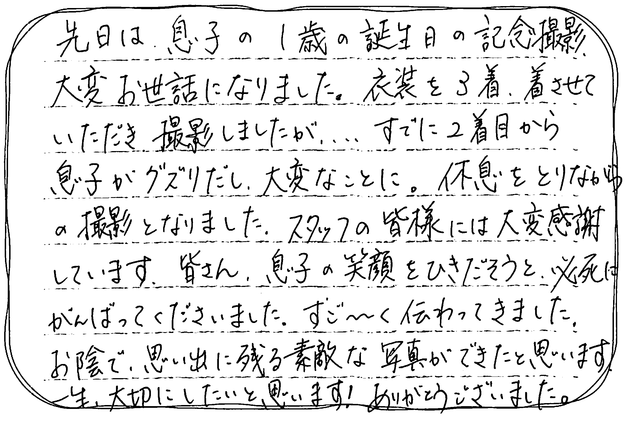 先日は、息子の1歳の誕生日の記念撮影、
大変お世話になりました。衣装を3着、着させて
いただき撮影しましたが、... すでに2着目から
息子がグズリだし、大変なことに。休息をとりながら
の撮影となりました。スタッフの皆様には大変感謝
しています。皆さん、息子の笑顔をひきだそうと、必死に
がんばってくださいました。すご〜く伝わってきました。
お陰で、思い出に残る素敵な写真ができたと思います。
一生、大切にしたいと思います!ありがとうございました。